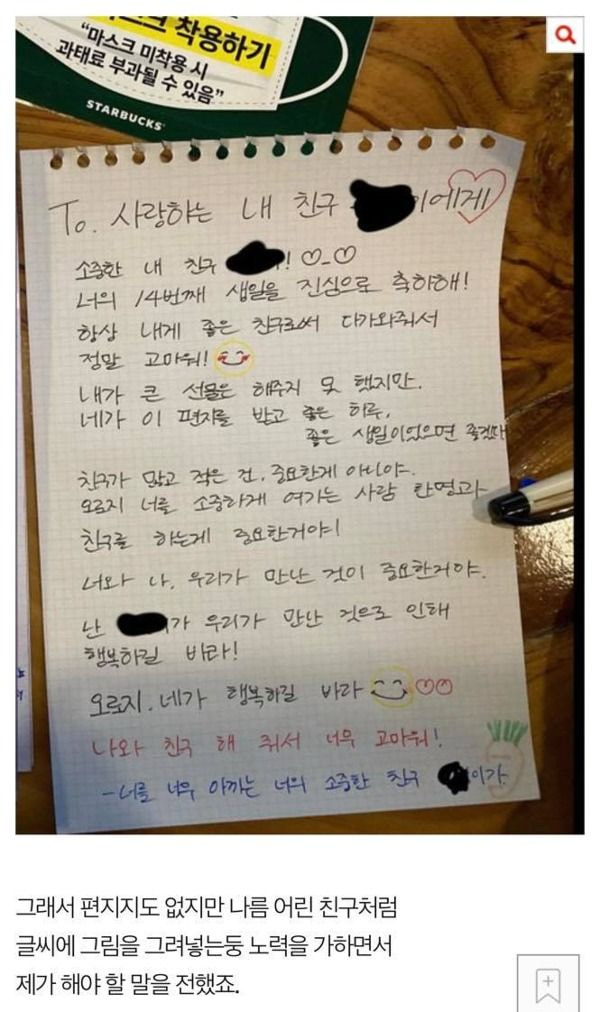 마스크 착용하기
“마스크 미착용 시
과태료 부과될 수 있음”
STARBUCKS
To. 사랑하는 내 친구 이에게
소중한 내 친구 !
너의 14번째 생일을 진심으로 축하해!
항상 내게 좋은 친구로써 다가와줘서
정말 고마워!
내가 큰 선물은 해주지 못 했지만.
네가 이 편지를 받고 좋은 하루,
좋은 생일이었으면 좋겠다
친구가 많고 적은 건, 중요한게 아니야.
오로지 너를 소중하게 여기는 사람 한명과
친구를 하는게 중요한거야!
너와 나, 우리가 만난 것이 중요한거야.
난 가 우리가 만난 것으로 인해
행복하길 바라!
오로지, 네가 행복하길 바라
나와 친구 해 줘서 너무 고마워!
-너를 너무 아끼는 너의 소중한 친구 이가.
그래서 편지지도 없지만 나름 어린 친구처럼
글씨에 그림을 그려넣는둥 노력을 가하면서
제가 해야 할 말을 전했죠.